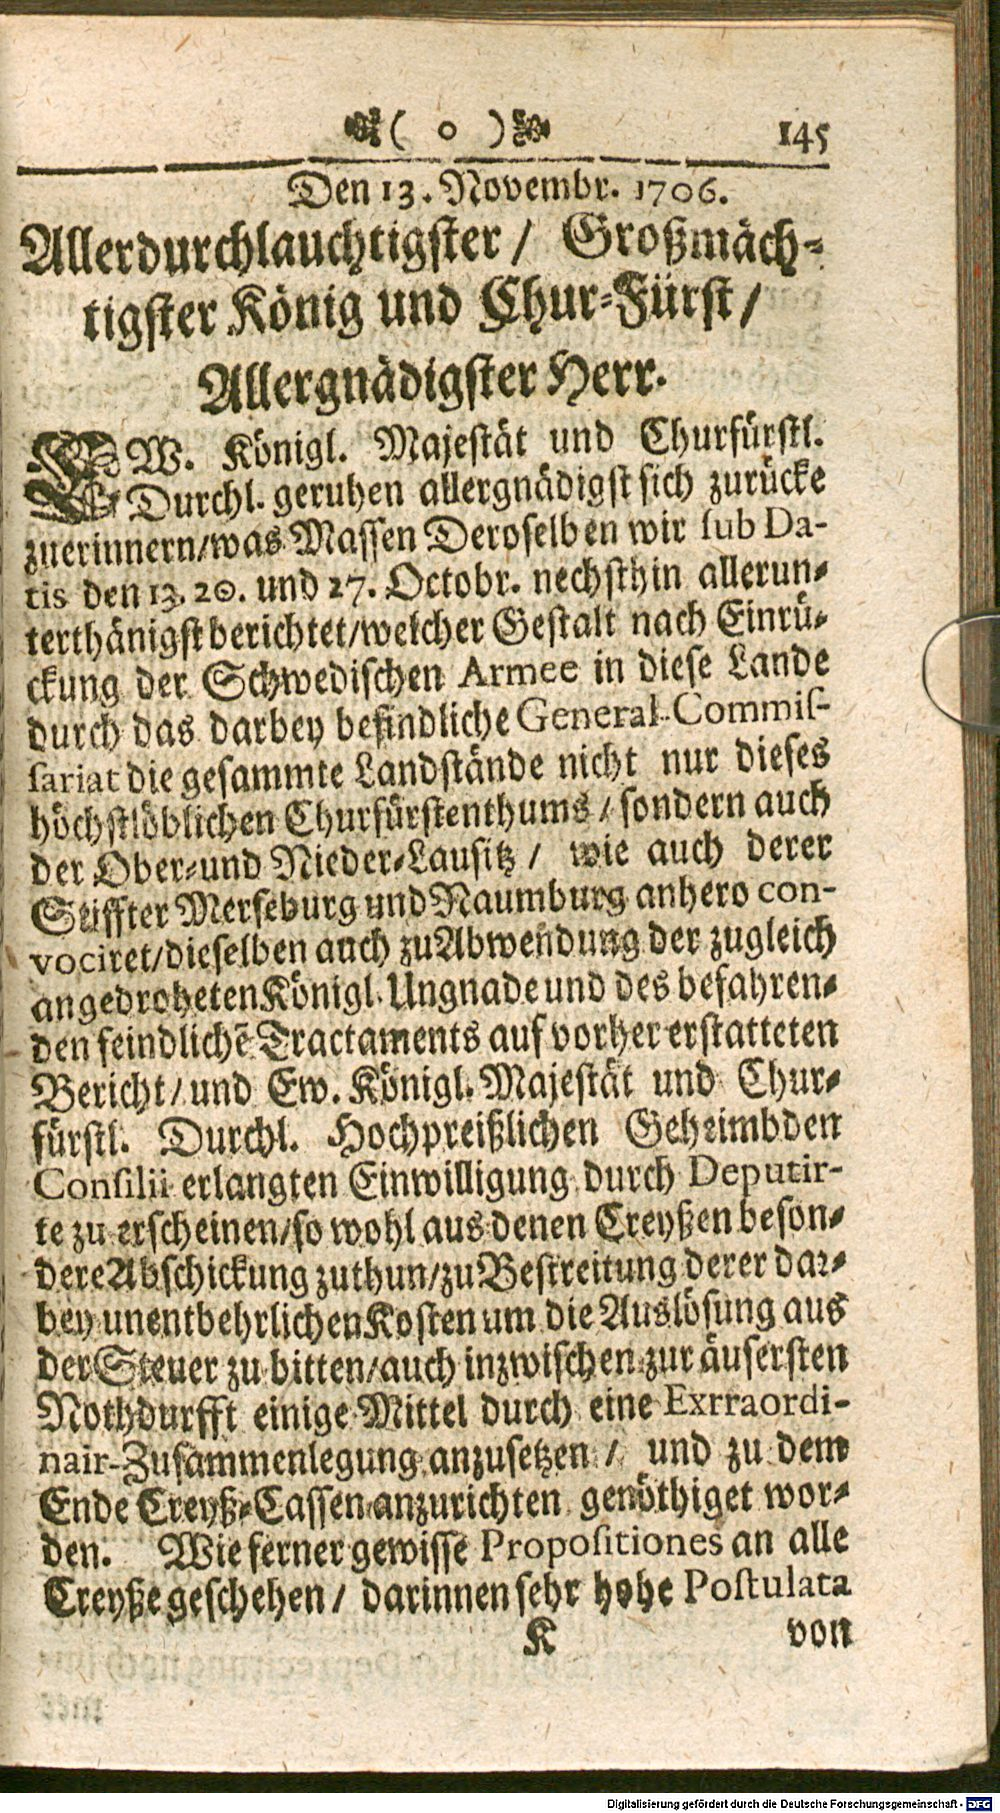 ( o ) 145
Den 13. Novembr. 1706.
Allerdurchlauchtigster / Großmäch-
tigster König und Chur-Fürst /
Allergnädigster Herr.
EW. Königl. Majestät und Churfürstl.
Durchl. geruhen allergnädigst sich zurücke
zuerinnern/was Massen Deroselben wir sub Da-
tis den 13. 20. und 27. Octobr. nechsthin allerun-
terthänigst berichtet/welcher Gestalt nach Einrü-
ckung der Schwedischen Armee in diese Lande
durch das darbey befindliche General-Commis-
sariat die gesammte Landstände nicht nur dieses
höchstlöblichen Churfürstenthums / sondern auch
der Ober-und Nieder-Lausitz / wie auch derer
Stiffter Merseburg und Naumburg anhero con-
vociret/dieselben auch zu Abwendung der zugleich
angedroheten Königl. Ungnade und des befahren-
den feindlichē Tractaments auf vorher erstatteten
Bericht / und Ew. Königl. Majestät und Chur-
fürstl. Durchl. Hochpreißlichen Geheimbden
Consilii erlangten Einwilligung durch Deputir-
te zu erscheinen/so wohl aus denen Creyßen beson-
dere Abschickung zuthun/zu Bestreitung derer dar-
bey unentbehrlichen Kosten um die Auslösung aus
der Steuer zu bitten/auch inzwischen zur äusersten
Nothdurfft einige Mittel durch eine Exrraordi-
nair-Zusammenlegung anzusetzen / und zu dem
Ende Creyß-Cassen anzurichten genöthiget wor-
den. Wie ferner gewisse Propositiones an alle
Creyße geschehen / darinnen sehr hohe Postulata
K von
Digitalisierung gefördert durch die Deutsche Forschungsgemeinschaft - DFG